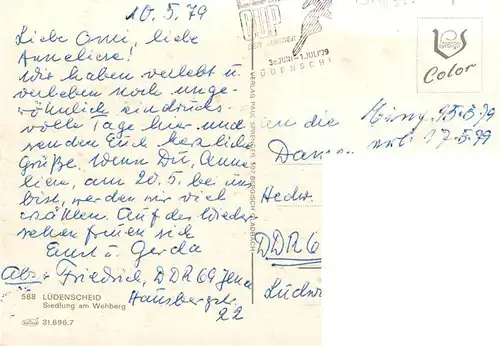 10.5.79
Liebe Omi, liebe
Anneliese!
Wir haben verlebt u.
verleben noch unge-
wöhnlich eindrucks-
volle Tage hier und
senden Euch herzliche
Grüße. Wenn Du, Anne-
lien, am 20.5. bei uns
bist, werden wir viel
erzählen. Auf das Wieder-
sehen freuen sich
Ernst u. Gerda
Abs. Friedrich, DDR 69 Jena
Hausbergstr.
22
588 LÜDENSCHEID
Siedlung am Wehberg
31.696.7
VERLAG PAUL SPRINGER, 507 BERGISCH GLADBACH
30.JUNI-1.JULI'79
LÜDENSCHEI
Color
15.5.79
17.5.79
en die
Damen
Hedw.
DDR 6
Ludw